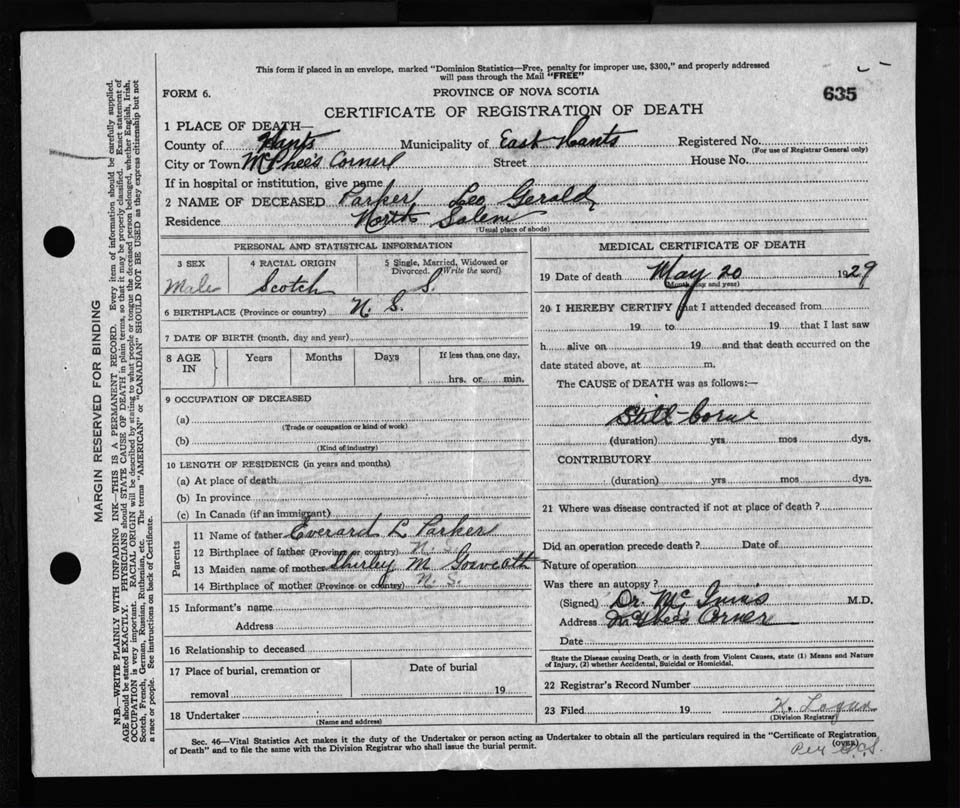 This form if placed in an envelope, marked "Dominion Statistics—Free, penalty for improper use, $300," and properly addressed
will pass through the Mail "FREE"
FORM 6.
PROVINCE OF NOVA SCOTIA
635
CERTIFICATE OF REGISTRATION OF DEATH
1 PLACE OF DEATH—
County of Hants Municipality of East Hants Registered No.
(For use of Registrar General only)
City or Town McPhee's Corner Street House No.
If in hospital or institution, give name
2 NAME OF DECEASED Parker Leo Gerald
Residence North Salem
(Usual place of abode)
PERSONAL AND STATISTICAL INFORMATION
3 SEX 4 RACIAL ORIGIN 5 Single, Married, Widowed or
Divorced. (Write the word)
Male Scotch S.
6 BIRTHPLACE (Province or country) N. S.
7 DATE OF BIRTH (month, day and year)
8 AGE Years Months Days If less than one day,
IN
hrs. or min.
9 OCCUPATION OF DECEASED
(a)
(Trade or occupation or kind of work)
(b)
(Kind of industry)
10 LENGTH OF RESIDENCE (in years and months)
(a) At place of death
(b) In province
(c) In Canada (if an immigrant)
Parents
11 Name of father Everard L Parker
12 Birthplace of father (Province or country) N. S.
13 Maiden name of mother Shirley M
14 Birthplace of mother (Province or country) N. S.
15 Informant's name
Address
16 Relationship to deceased
17 Place of burial, cremation or Date of burial
removal 19
18 Undertaker
(Name and address)
MEDICAL CERTIFICATE OF DEATH
19 Date of death May 20 1929
(Month, day and year)
20 I HEREBY CERTIFY that I attended deceased from
19 to 19 that I last saw
h alive on 19 and that death occurred on the
date stated above, at m.
The CAUSE of DEATH was as follows:—
Still-borne
(duration) yrs mos dys.
CONTRIBUTORY
(duration) yrs mos dys.
21 Where was disease contracted if not at place of death?
Did an operation precede death? Date of
Nature of operation
Was there an autopsy?
(Signed) Dr. Mc M.D.
Address McPhee's Corner
Date
State the Disease causing Death, or in death from Violent Causes, state (1) Means and Nature
of Injury, (2) whether Accidental, Suicidal or Homicidal.
22 Registrar's Record Number
23 Filed 19
(Division Registrar)
Sec. 46—Vital Statistics Act makes it the duty of the Undertaker or person acting as Undertaker to obtain all the particulars required in the "Certificate of Registration
of Death" and to file the same with the Division Registrar who shall issue the burial permit.
(OVER)
Per
MARGIN RESERVED FOR BINDING
N.B.—WRITE PLAINLY WITH UNFADING INK—THIS IS A PERMANENT RECORD. Every item of information should be carefully supplied.
AGE should be stated EXACTLY. PHYSICIANS should STATE CAUSE OF DEATH in plain terms, so that it may be properly classified. Exact statement of
OCCUPATION is very important. RACIAL ORIGIN will be described by stating to what people or tongue the deceased person belonged, whether English, Irish,
Scotch, French, German, Russian, Ruthenian, etc. The terms "AMERICAN" or "CANADIAN" SHOULD NOT BE USED as they express citizenship but not
a race or people. See instructions on back of Certificate.